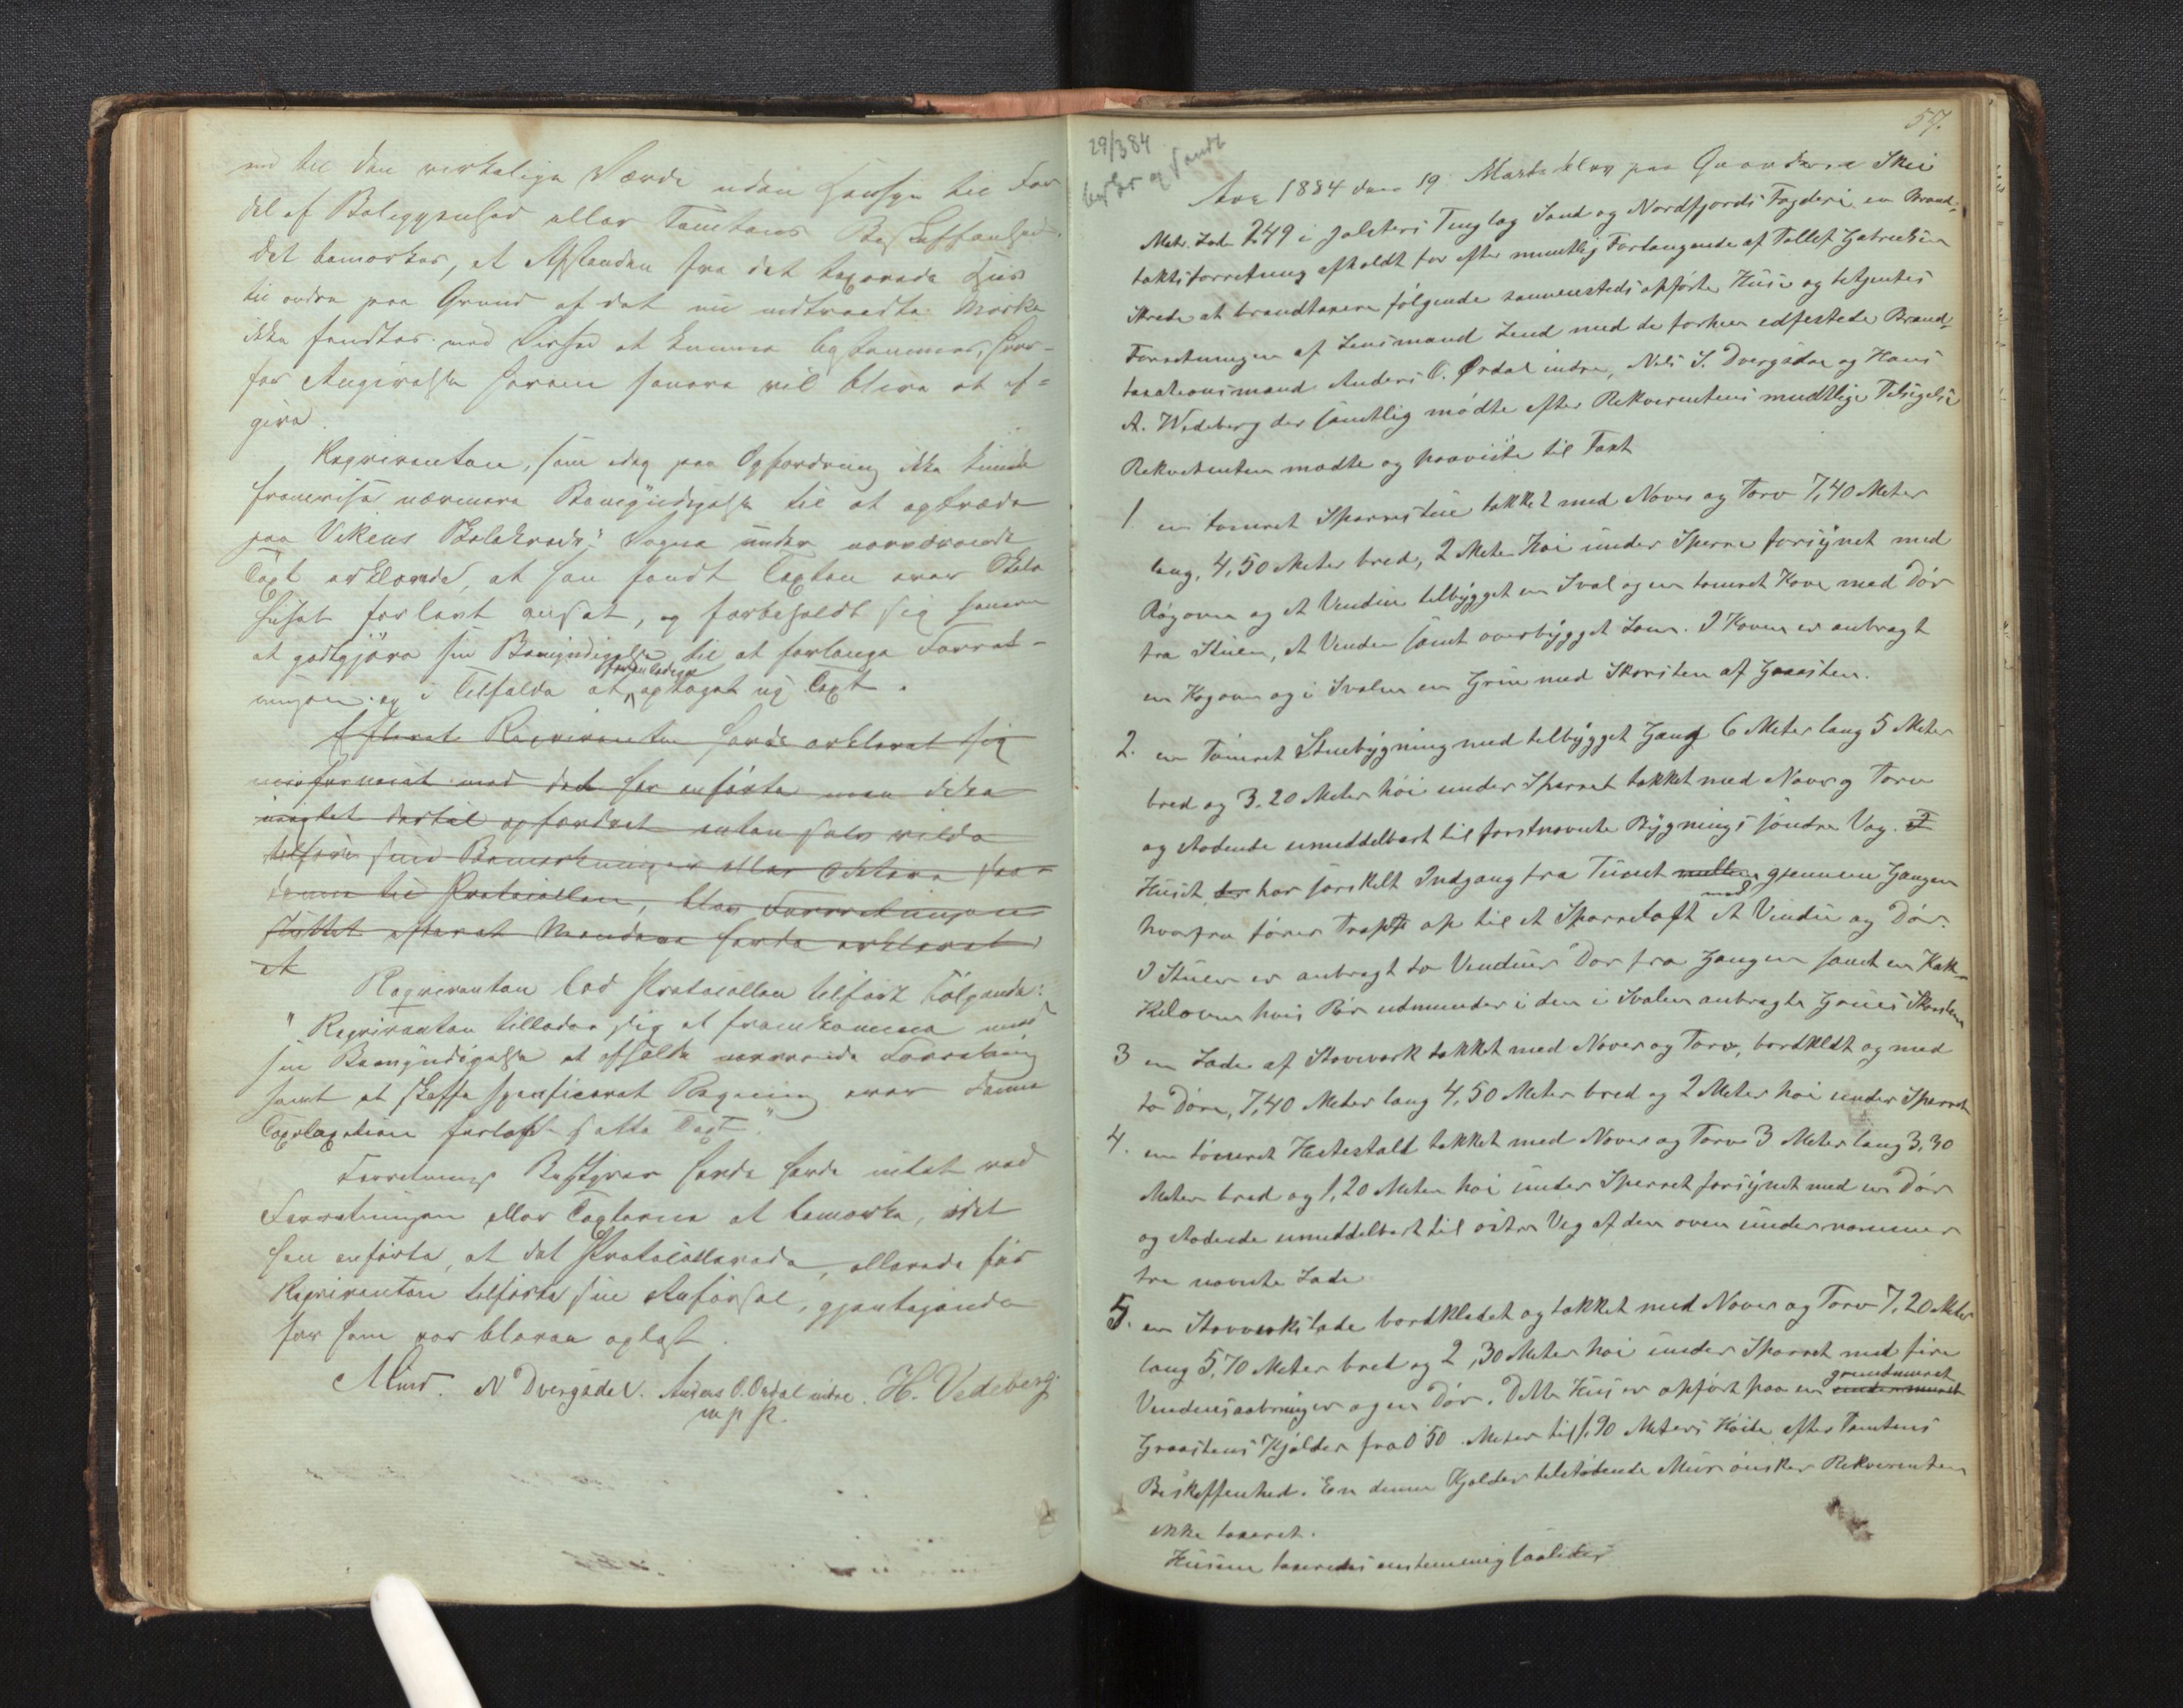 ved til den virkelige Værdi uden Hensyn til For
del af Beliggenhed eller Tomtens Beskaffenhed.
det bemærkes, at Afstanden fra det taxerede Huus
til andre paa Grund af det nu indtraadte Mørke
ikke fandtes med Vished at kunne bestemmes, hvor-
for Angivelse herom senere vil blive at af=
give.
Reqvirenten, som idag paa Opfordring ikke kunde
fremvise nærmere Bemyndigelse til at optræde
paa Vikens Skolekreds's Vegne under nærværende
Taxt erklærede, at han fandt Taxten over Skole
huset for lavt ansat, og forbeholdt sig senere
at godtgjøre sin Bemyndigelse til at forlange Forret-
ningen og i Tilfælde at foranledige optaget ny Taxt.
Efterat Reqvirenten havde erklæret sig
misfornøiet med det her anførte men ikke
uagtet dertil opfordret enten selv vilde
tilføre sine Bemærkninger eller diktere saa-
danne til Protocollen, blev Forretningen
sluttet efterat Mændene havde erklæret
at
Reqvirenten lod Protocollen tilført Følgende:
"Reqvirenten tillader sig at fremkomme med
sin Bemyndigelse at afholde nærværende Forretning
samt at skaffe specificeret Regning over denne
Taxt"
Forretnings Bestyrer havde intet ved
Forretningen eller Taxterne at bemærke, idet
han anførte, at det Protocollerede, allerede før
Reqvirenten tilførte sin Anførsel, gjentagende
for ham var bleven oplæst.
N Dvergsdal. Anders O. Ordal indre. H. Vedeberg.
m p P.
29/3 84
57.
Aar 1884 den 19 Marts blev paa Gaarden Skei
Matr. Løbe 249 i Jølsters Tinglag Sønd og Nordfjords Fogderi en Brand-
taktsforretning afholdt for efter mundtlig Forlangende af Tollef Gabrielsen
Skrede at brandtaxere følgende sammesteds opførte Huse og betjentes
Forretningen af Lensmand Lund med de forhen edfestede Brand-
taxationsmænd Anders O. Ørdal indre, Nils S. Dvergsdal og Hans
A. Wedeberg der samtlig mødte efter Rekvirentens mundtlige Tilsigelse
Rekvirenten mødte og paaviste til Taxt
1. en tømret Sparrestue tækket med Never og Torv 7,40 Meter
lang, 4,50 Meter bred, 2 Meter høi under Sperre forsynet med
Røgovn og et Vindue tilbygget en Sval og en tømret Kove med Dør
fra Stuen, et Vindue samt overbygget Lem. I Koven er anbragt
en Kogovn og i Svalen en Grue med Skorsten af Graasten.
2. en Tømret Stuebygning med tilbygget Gang 6 Meter lang 5 Meter
bred og 3,20 Meter høi under Sperret tækket med Never og Torv
og stødende umiddelbart til førstnævnte Bygnings søndre Væg. I
Huset der har særskilt Indgang fra Tunet mellem gjennem Gangen
hvorfra fører Trappe op til et Sparreloft med et Vindue og Dør.
I Stuen er anbragt to Vinduer Dør fra Gangen samt en Kak-
kelovn hvis Rør udmunder i den i Svalen anbragte Grues Skorsten
3 en Lade af Stavværk tækket med Never og Torv, bordklædt og med
to Døre, 7,40 Meter lang 4,50 Meter bred og 2 Meter høi under Sperret
4. en tømret Hestestald tækket med Never og Torv 3 Meter lang 3,30
Meter bred og 1,20 Meter høi under Sperret forsynet med en Dør
og stødende umiddelbart til østre Væg af den oven under nummer
tre nævnte Lade
5. en Stavværkslade bordklædet og tækket med Never og Torv 7,20 Meter
lang 5,70 Meter bred og 2,30 Meter høi under Sparret med fire
Vinduesaabninger og en Dør. Dette Hus er opført paa en undermuret grundmuret
Graastens Kjelder fra 0 50 Meter til 1,90 Meters Høide efter Tomtens
Beskaffenhed. En denne Kjelder tilstødende Mur ønsker Rekvirenten
ikke taxeret.
Husene taxeredes enstemmig saaledes